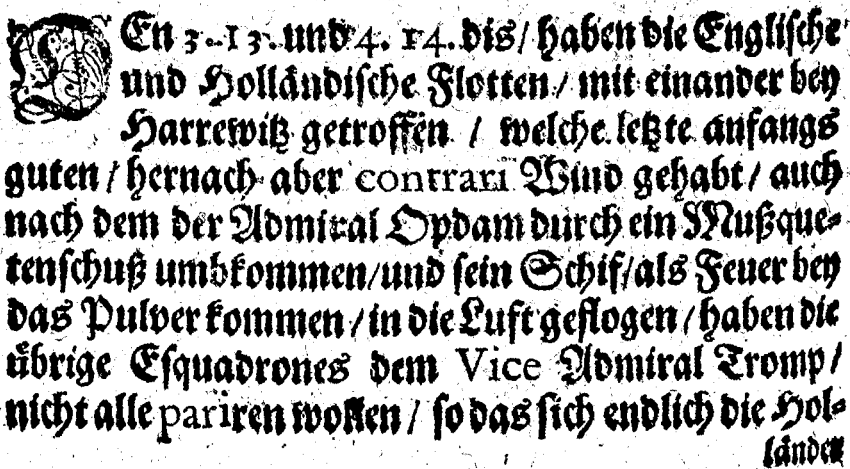 DEn 3.-13. und 4. 14. dis / haben die Englische
und Holländische Flotten / mit einander bey
Harrewitz getroffen / welche letzte anfangs
guten / hernach aber contrari Wind gehabt / auch
nach dem der Admiral Opdam durch ein Mußque-
tenschuß umbkommen / und sein Schif / als Feuer bey
das Pulver kommen / in die Luft geflogen / haben die
übrige Esquadrones dem Vice Admiral Tromp /
nicht alle pariren wollen / so das sich endlich die Hol-
länder